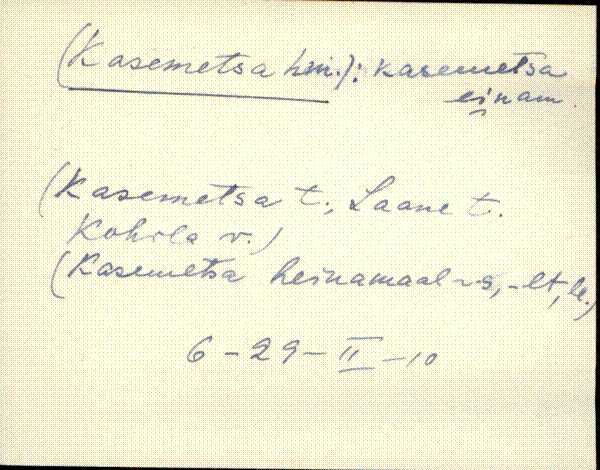 (Kasemetsa hm.): kasemetsa
einam.
(Kasemetsa t., Laane t.
Kohila v.)
(Kasemetsa heinamaal ~ -s, -lt, le.)
6 - 29 - II - 10